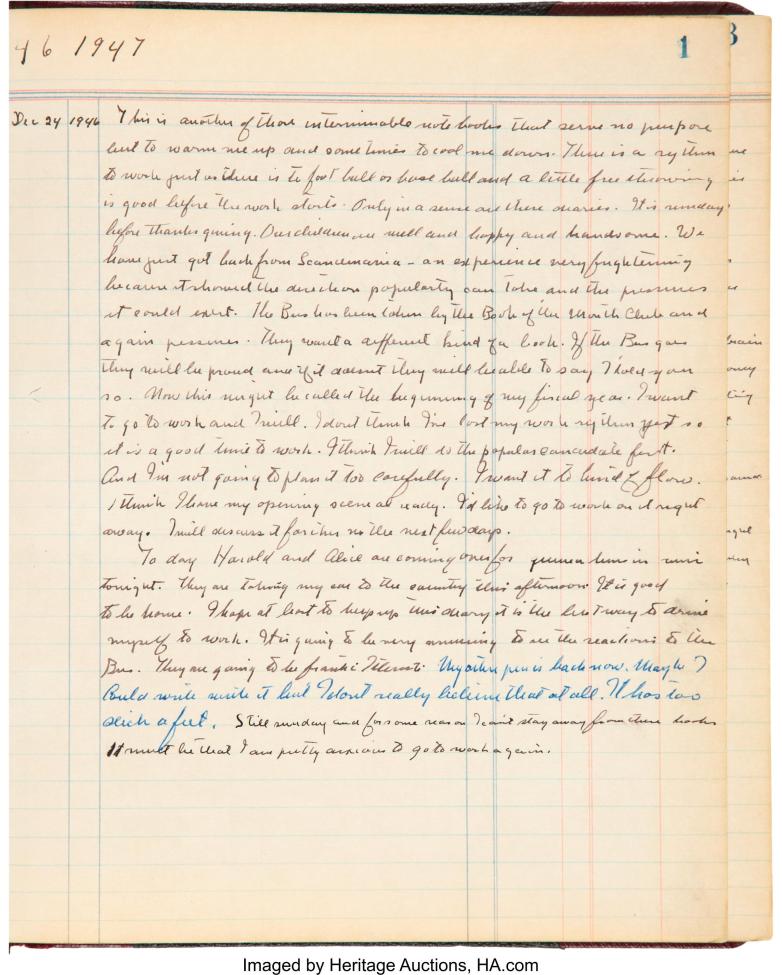 46 1947
1
3
Dec 24 1946 This is another of those interminable note books that serve no purpose
but to warm me up and sometimes to cool me down. There is a rythm
to work just as there is to foot ball or base ball and a little free throwing
is good before the work starts. Only in a sense are these diaries. It is sunday
before thanksgiving. Our children are well and happy and handsome. We
have just got back from Scandinavia - an experience very frightening
because it showed the direction popularity can take and the pressures
it could exert. The Bus has been taken by the Book of the Month Club and
again pressures. They want a different kind of a book. If the Bus goes
they will be proud and if it doesn't they will be able to say I told you
so. Now this might be called the beginning of my fiscal year. I want
to go to work and I will. I dont think I've lost my work rythm yet so
it is a good time to work. I think I will do the popular candidate first.
And I'm not going to plan it too carefully. I want it to kind of flow.
I think I have my opening scene all ready. I'd like to go to work on it right
away. I will discuss it further in the next few days.
To day Harold and Alice are coming over for
tonight. They are taking my car to the country this afternoon. It is good
to be home. I hope at least to keep up this diary it is the best way to drive
myself to work. It is going to be very amusing to see the reactions to the
Bus. They are going to be frantic I think. My other pen is back now. Maybe I
could write with it but I dont really believe that at all. It has too
slick a feel. Still sunday and for some reason I can't stay away from these books
It must be that I am pretty anxious to go to work again.
Imaged by Heritage Auctions, HA.com